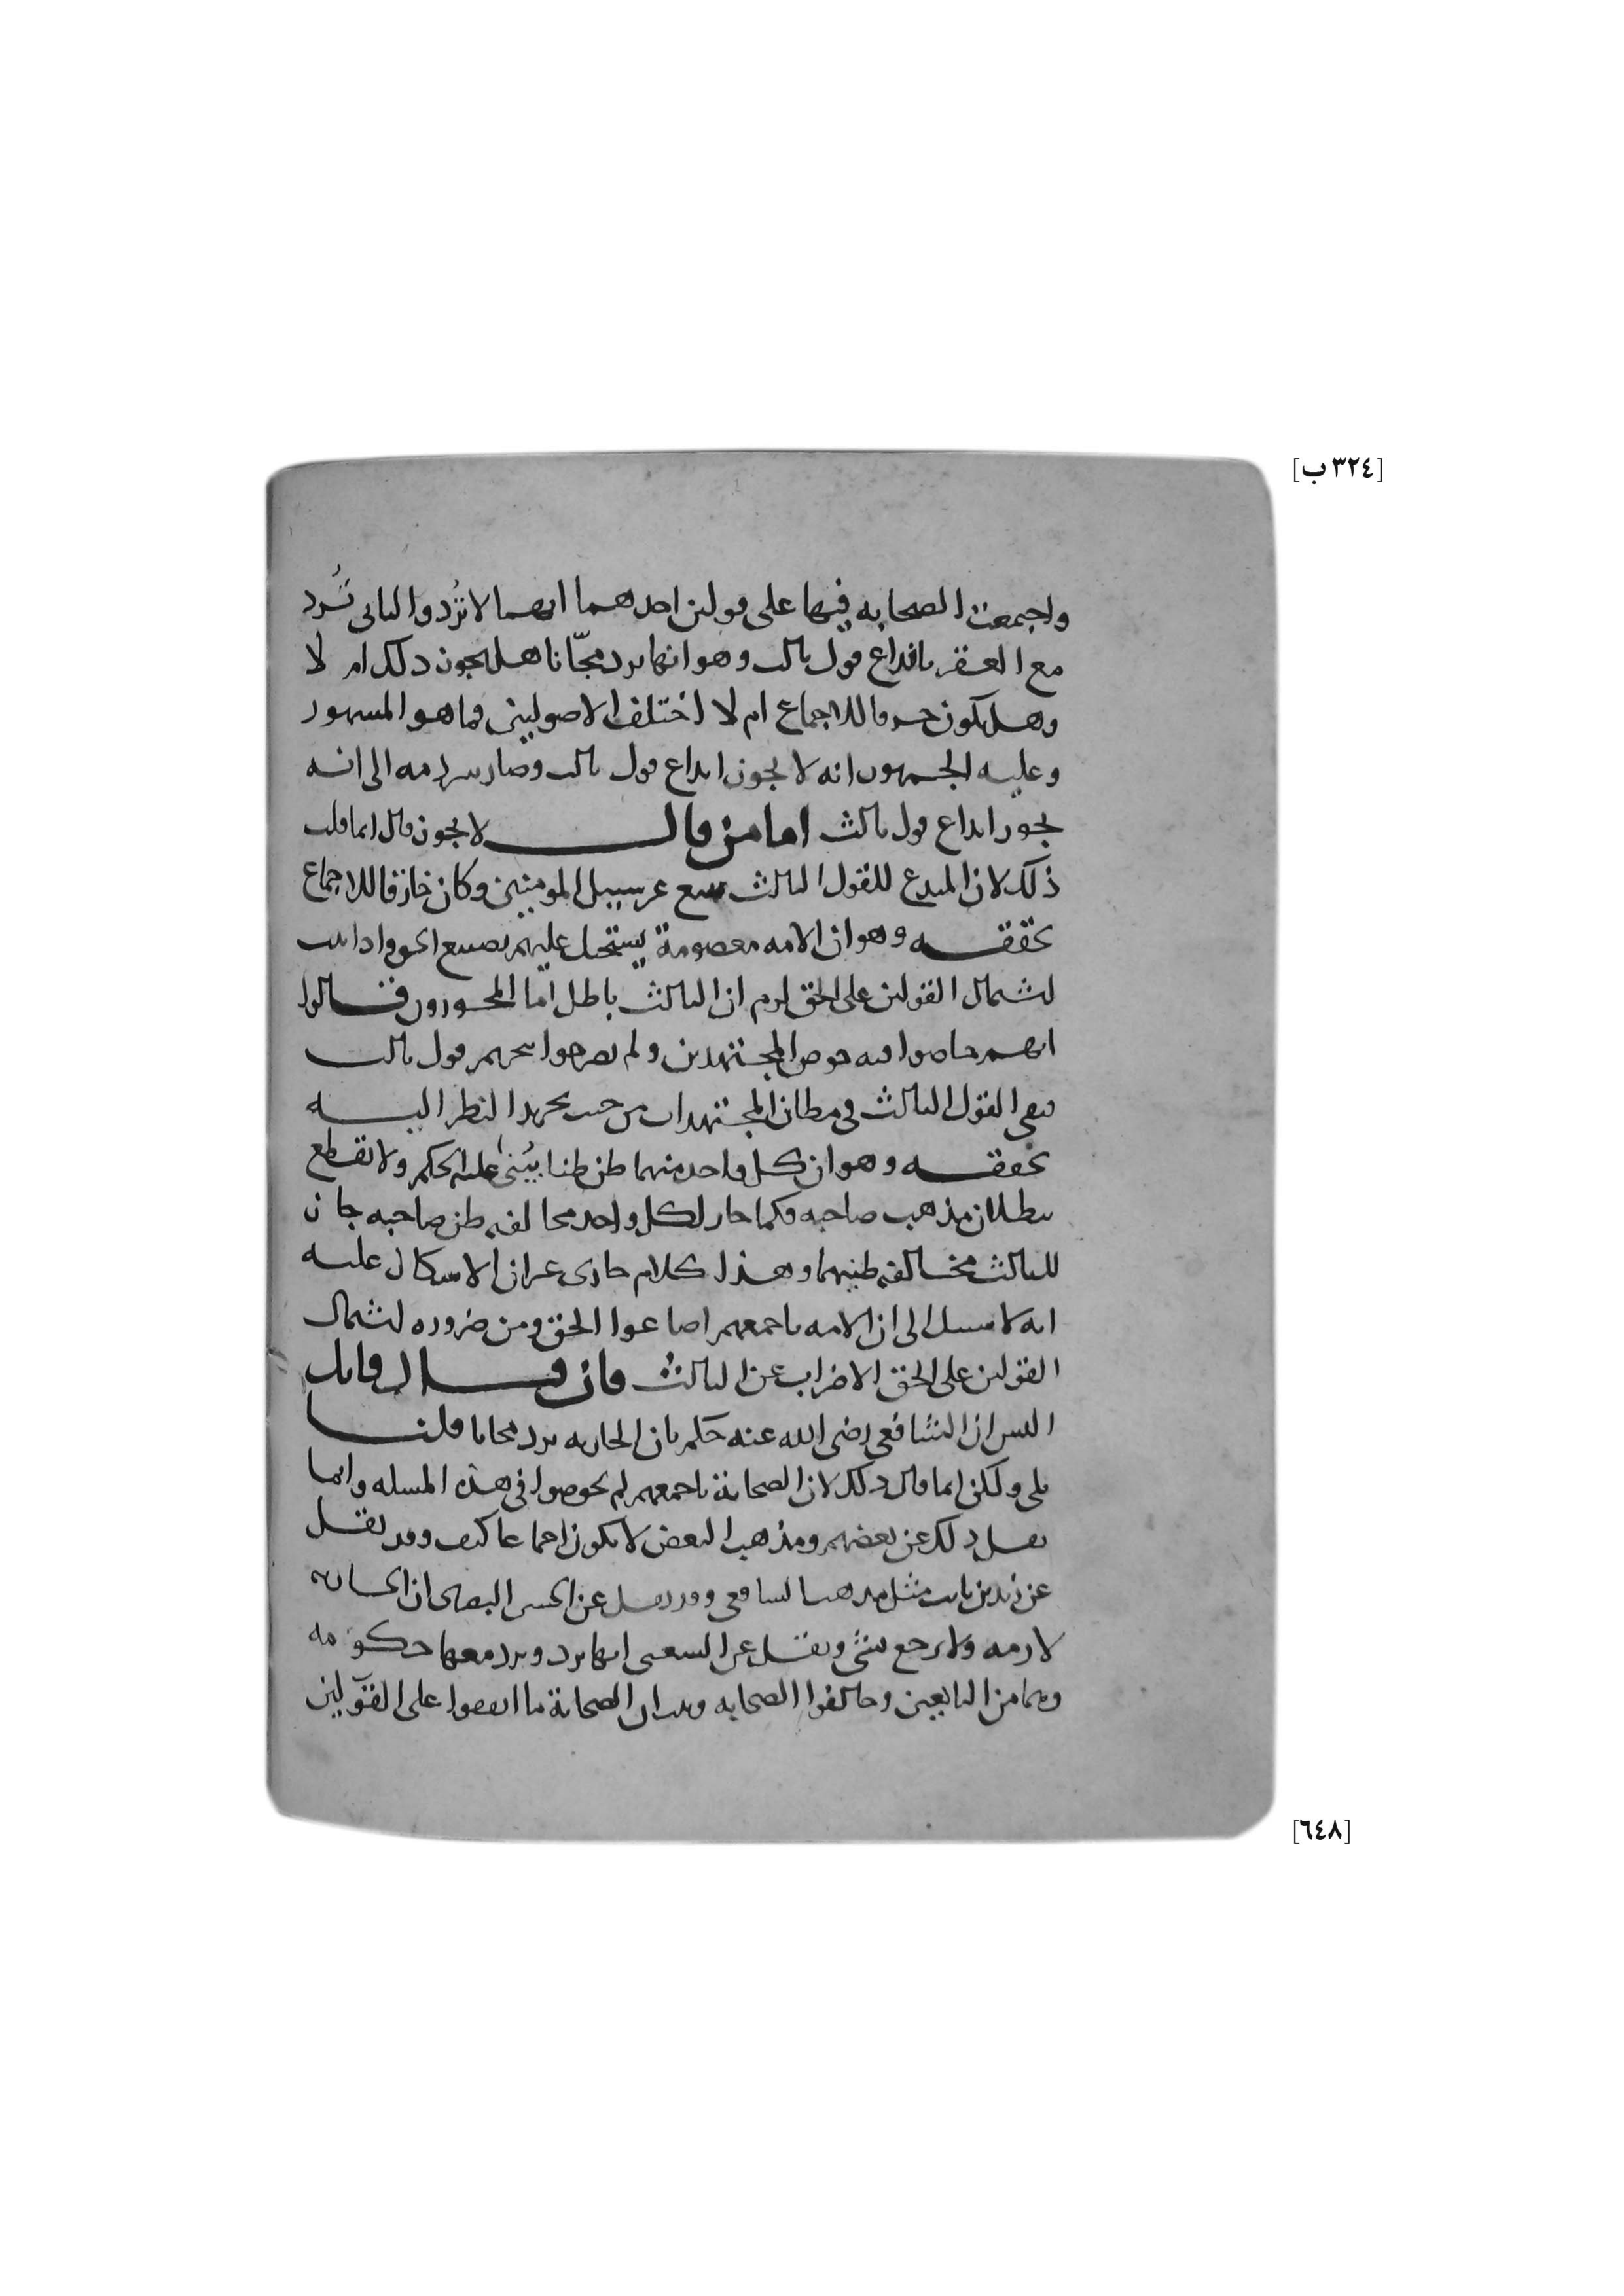 [٣٢٤ ب]
واجمعت الصحابه فيها على قولين احدهما انهما لا تُرد والثاني تُرد
مع العقر فابداع قول ثالث وهو انها ترد مجّانا هل يجوز ذلك ام لا
وهل يكون خرقا للاجماع ام لا اختلف الاصوليين فما هو المشهور
وعليه الجمهور انه لا يجوز ابداع قول ثالث وصار شرذمه الى انه
يجوز ابداع قول ثالث اما من قال لا يجوز قال انما قلت
ذلك لان المبدع للقول الثالث متبع غير سبيل المومنين وكان خارقا للاجماع
تحقيقه وهو ان الامه معصومة يستحيل عليهم تضييع الحق واذا ثبت
اشتمال القولين على الحق لزم ان الثالث باطل اما المجوزون فقالوا
انهم خاضوا فيه خوض المجتهدين ولم يصرحوا بتحريم قول ثالث
فبقي القول الثالث في مظان المجتهدات من حيث تجريد النظر اليه
تحقيقه وهو ان كل واحد منهما ظن ظنا يبنى عليه الحكم ولا نقطع
ببطلان مذهب صاحبه فكما جاز لكل واحد مخالفه ظن صاحبه جاز
للثالث مخالفه ظنيهما وهذا كلام جارى غير ان الاشكال عليه
انه لا سبيل الى ان الامه باجمعهم اضاعوا الحق ومن ضروره اشتمال
القولين على الحق الاضراب عن الثالث فان قال قايل
اليس ان الشافعي رضى الله عنه حكم بان الجاريه ترد مجانا قلنا
بلى ولكن انما قال ذلك لان الصحابة باجمعهم لم يخوضوا في هذه المسله وانما
نقل ذلك عن بعضهم ومذهب البعض لا يكون اجماعا كيف وقد نقل
عن زيد بن ثابت مثل مذهب الشافعي وقد نقل عن الحسن البصرى ان الجاريه
لازمه ولا يرجع بشي ونقل عن الشعبي انها ترد ويرد معها حكومه
وهما من التابعين وخالفوا الصحابه وثبت ان الصحابة ما اتفقوا على القولين
[٦٤٨]